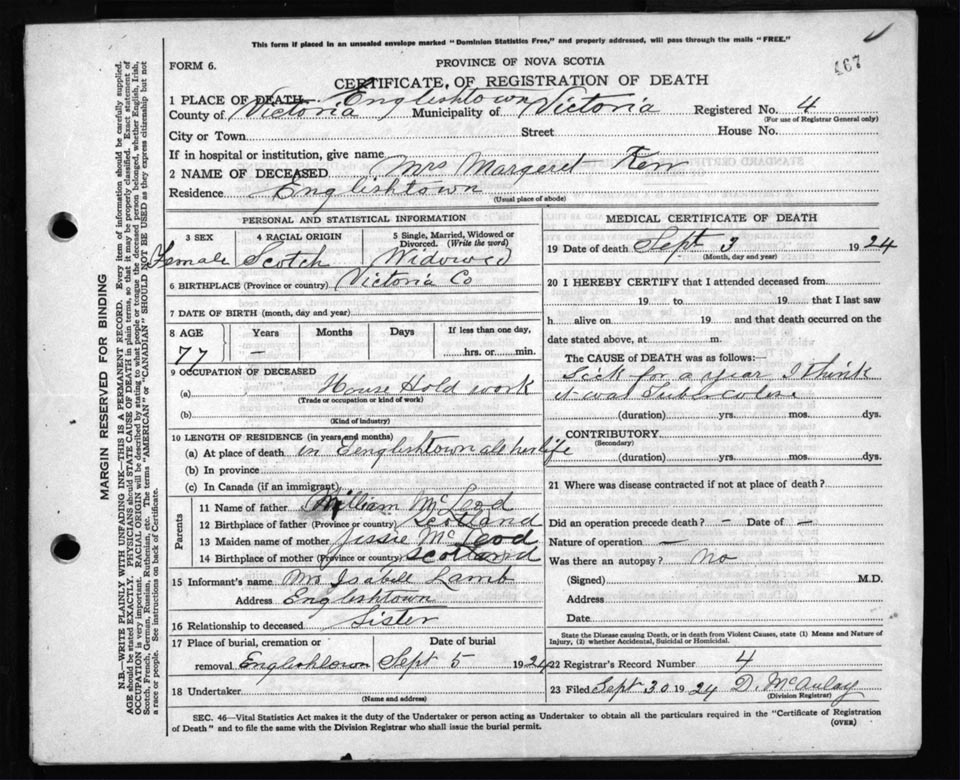 This form if placed in an unsealed envelope marked "Dominion Statistics Free," and properly addressed, will pass through the mails "FREE."
467
FORM 6.
PROVINCE OF NOVA SCOTIA
CERTIFICATE OF REGISTRATION OF DEATH
1 PLACE OF DEATH Englishtown
County of Victoria Municipality of Victoria Registered No. 4
(For use of Registrar General only)
City or Town Street House No.
If in hospital or institution, give name
2 NAME OF DECEASED Mrs Margaret Kerr
Residence Englishtown
(Usual place of abode)
PERSONAL AND STATISTICAL INFORMATION
3 SEX 4 RACIAL ORIGIN 5 Single, Married, Widowed or Divorced. (Write the word)
Female Scotch Widowed
6 BIRTHPLACE (Province or country) Victoria Co
7 DATE OF BIRTH (month, day and year)
8 AGE Years Months Days If less than one day,
77 — hrs. or min.
9 OCCUPATION OF DECEASED
(a) House Hold work
(Trade or occupation or kind of work)
(b)
(Kind of industry)
10 LENGTH OF RESIDENCE (in years and months)
(a) At place of death in Eenglishtown all her life
(b) In province
(c) In Canada (if an immigrant)
Parents
11 Name of father William McLeod
12 Birthplace of father (Province or country) Scotland
13 Maiden name of mother Jessie McLeod
14 Birthplace of mother (Province or country) Scotland
15 Informant's name Mrs Isabell Lamb
Address Englishtown
16 Relationship to deceased Sister
17 Place of burial, cremation or removal Date of burial
Englishtown Sept 5 1924
18 Undertaker
(Name and address)
MEDICAL CERTIFICATE OF DEATH
19 Date of death Sept 3 1924
(Month, day and year)
20 I HEREBY CERTIFY that I attended deceased from
19 to 19 that I last saw
h alive on 19 and that death occurred on the
date stated above, at m.
The CAUSE of DEATH was as follows:—
Sick for a year I think
it was Tubercolise
(duration) yrs. mos. dys.
CONTRIBUTORY
(Secondary)
(duration) yrs. mos. dys.
21 Where was disease contracted if not at place of death?
Did an operation precede death? – Date of —
Nature of operation —
Was there an autopsy? no
(Signed) M.D.
Address
Date
State the Disease causing Death, or in death from Violent Causes, state (1) Means and Nature of Injury, (2) whether Accidental, Suicidal or Homicidal.
22 Registrar's Record Number 4
23 Filed Sept 30 1924 D. McAulay
(Division Registrar)
SEC. 46—Vital Statistics Act makes it the duty of the Undertaker or person acting as Undertaker to obtain all the particulars required in the "Certificate of Registration
of Death" and to file the same with the Division Registrar who shall issue the burial permit. (OVER)
MARGIN RESERVED FOR BINDING
N.B.—WRITE PLAINLY WITH UNFADING INK—THIS IS A PERMANENT RECORD. Every item of information should be carefully supplied.
AGE should be stated EXACTLY. PHYSICIANS should STATE CAUSE OF DEATH in plain terms, so that it may be properly classified. Exact statement of
OCCUPATION is very important. RACIAL ORIGIN will be described by stating to what people or tongue the deceased person belonged, whether English, Irish,
Scotch, French, German, Russian, Ruthenian, etc. The terms "AMERICAN" or "CANADIAN" SHOULD NOT BE USED as they express citizenship but not
a race or people. See instructions on back of Certificate.